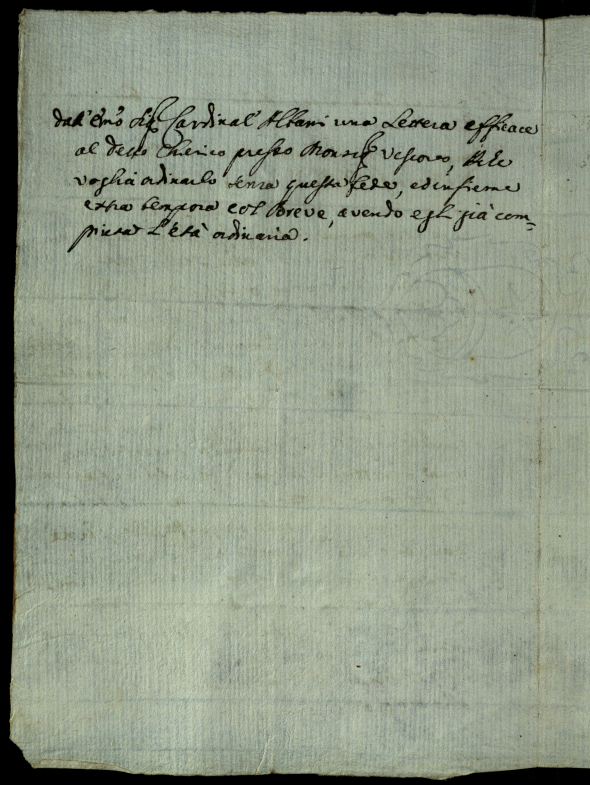 dall'Emo Sig. Cardinal' Albani una Lettera efficace
al detto Cherico presso Monsig. Vescovo, che
voglia ordinarlo senza questa fede, ed insieme
extra tempora col Breve, avendo egli già com=
piuta l'età ordinaria.